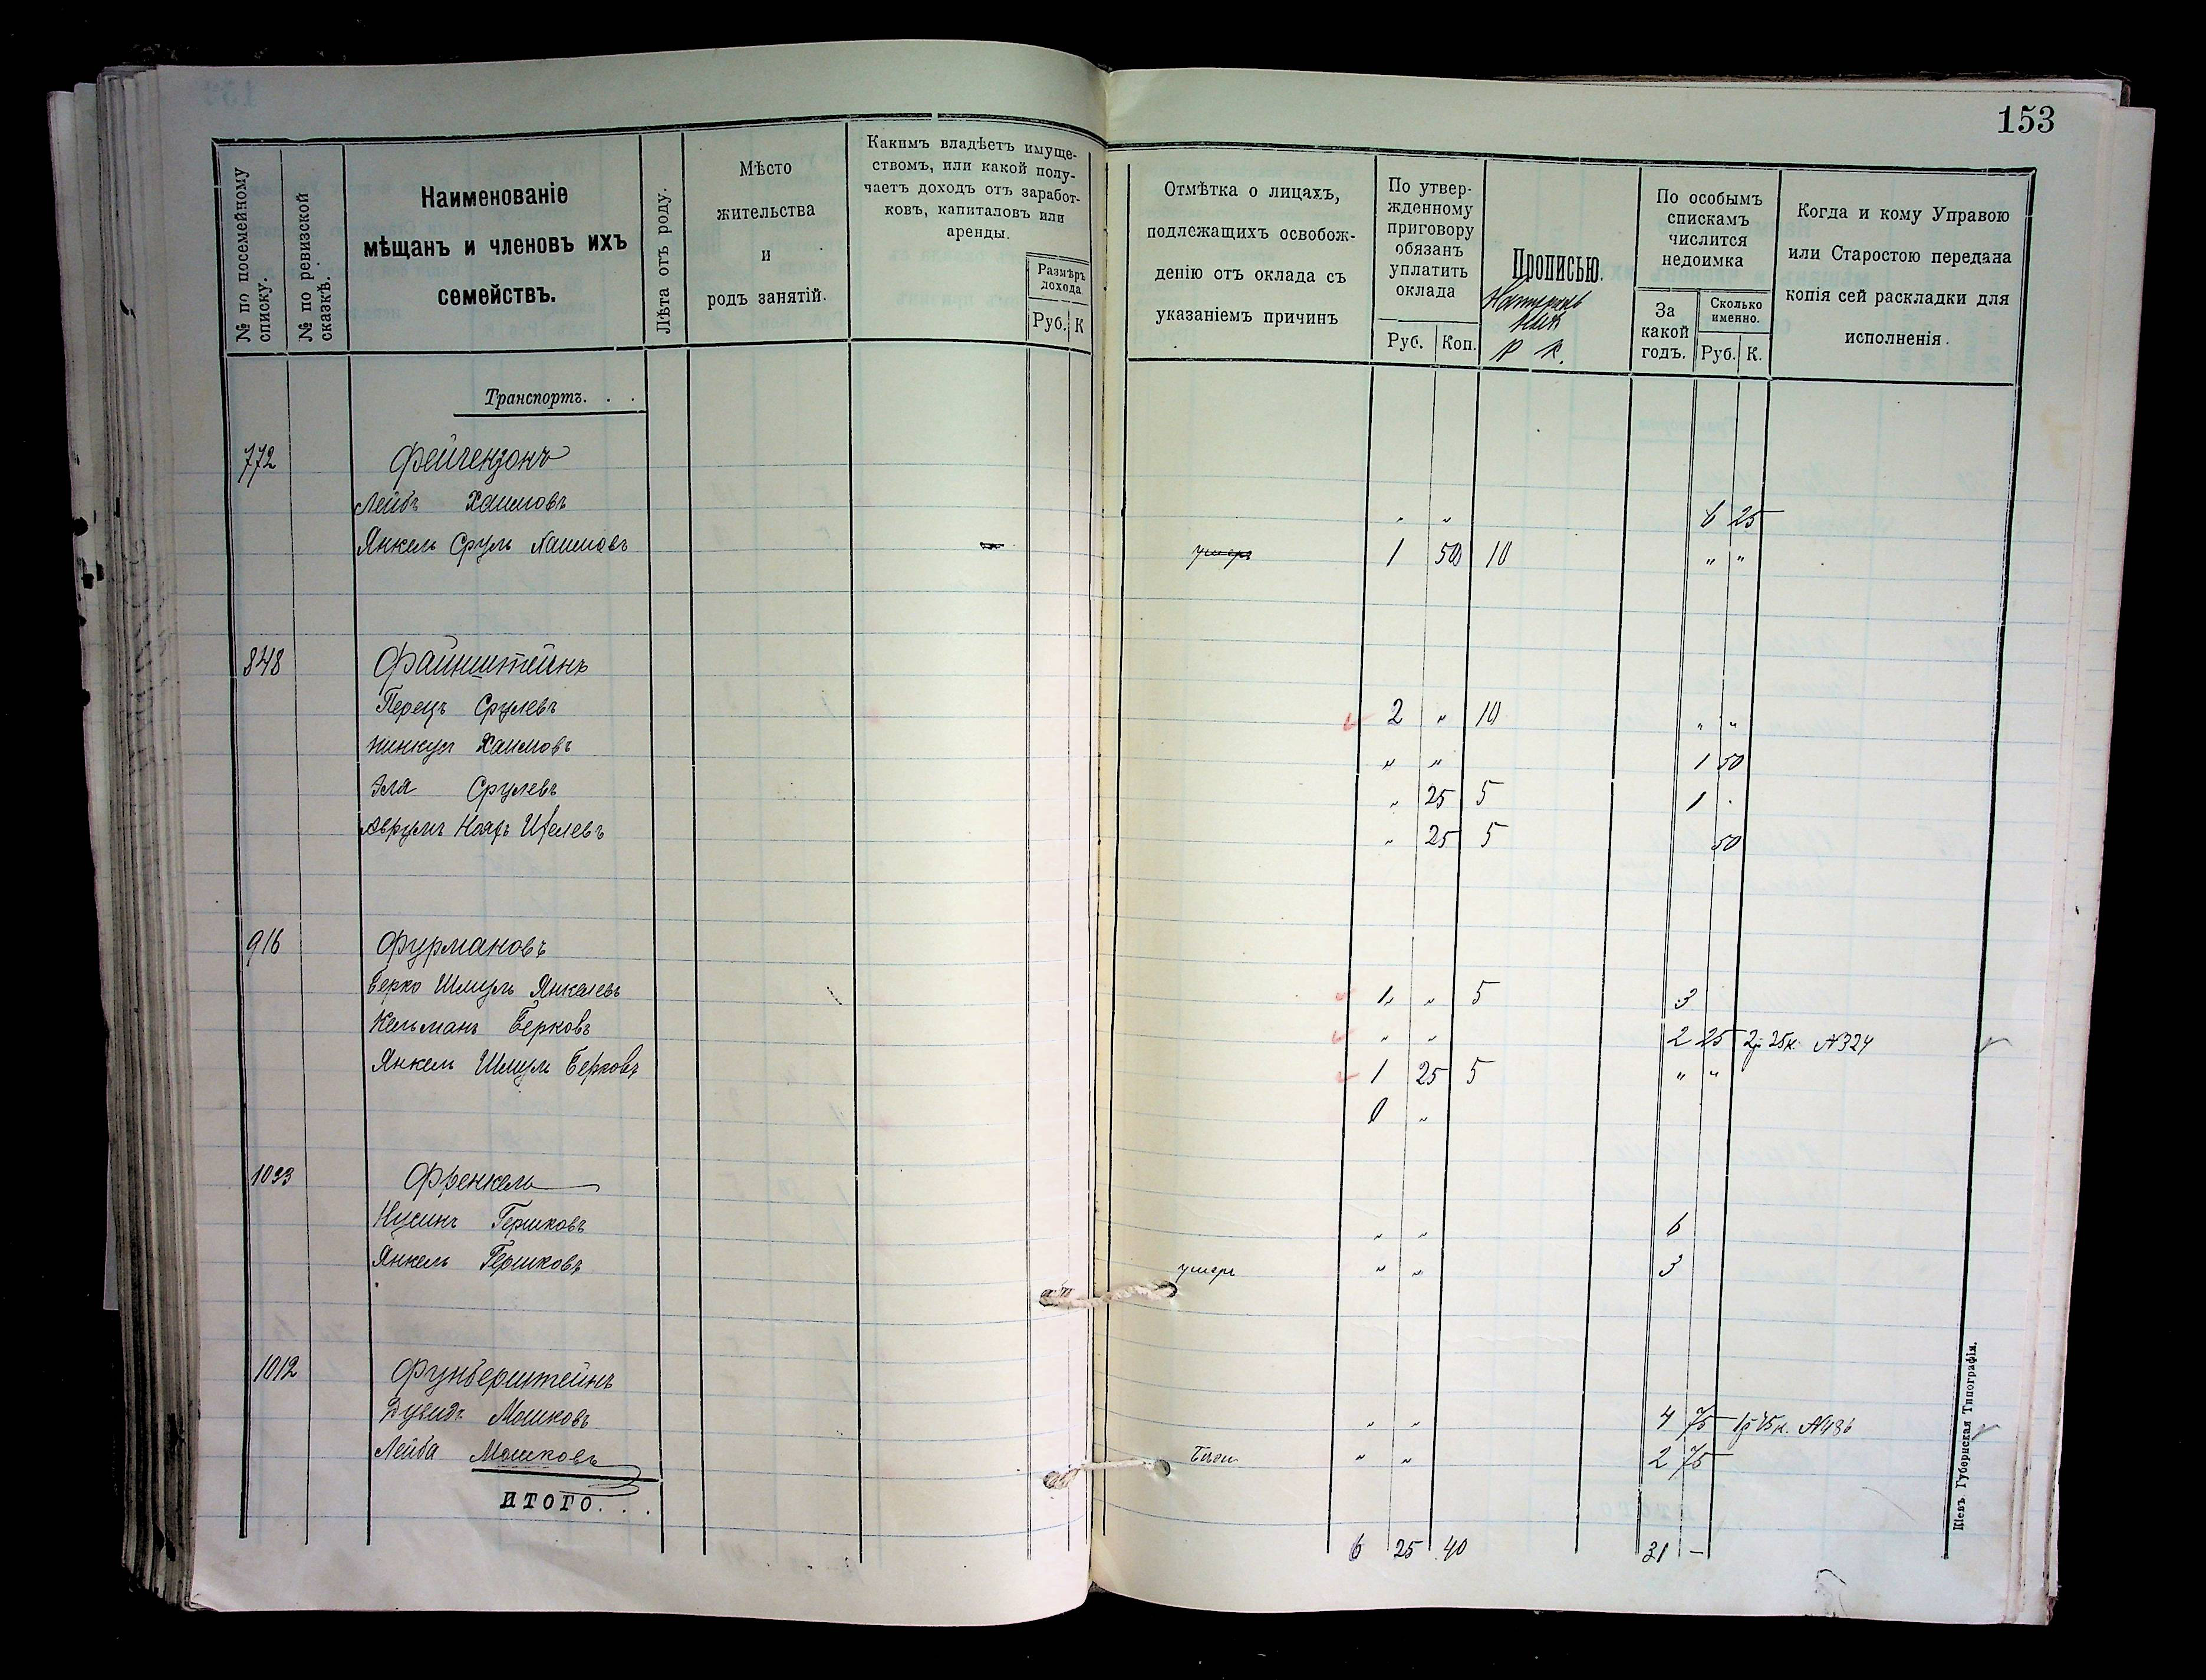 153
№ по посемейному списку.
№ по ревизской сказкѣ.
Наименованіе
мѣщанъ и членовъ ихъ
семействъ.
Лѣта отъ роду.
Мѣсто
жительства
и
родъ занятій.
Какимъ владѣетъ имуще-
ствомъ, или какой полу-
чаетъ доходъ отъ заработ-
ковъ, капиталовъ или
аренды.
Размѣръ
дохода
Руб. К
Отмѣтка о лицахъ,
подлежащихъ освобож-
денію отъ оклада съ
указаніемъ причинъ
По утвер-
жденному
приговору
обязанъ
уплатить
оклада
Руб. Коп.
Прописью.
Р К.
По особымъ
спискамъ
числится
недоимка
За
какой
годъ.
Сколько
именно.
Руб. К.
Когда и кому Управою
или Старостою передана
копія сей раскладки для
исполненія.
Транспортъ. . .
772 Фейгензонъ
Лейбъ Хаимовъ " " 6 25
Янкель Сруль Хаимовъ умеръ 1 50 10 " "
848 Файнштейнъ
Перецъ Срулевъ 2 " 10 " "
Хаимовъ " " 1 50
Эля Срулевъ " 25 5 1 "
Аврумъ " 25 5 50
916 Фурмановъ
Берко Шмуль Янкелевъ 1 " 5 3
Кельманъ Берковъ " " 2 25 2р 25к. №324
Янкель Шмуль Берковъ 1 25 5 " "
"
Френкель
Нусинъ Гершковъ " " 6
Янкель Гершковъ умеръ " " 3
1012 Фунберштейнъ
Дувидъ Мошковъ " " 4 75
Лейба Мошковъ " " 2 75
ИТОГО. . .
6 25 40 31 —
Кіевъ. Губернская Типографія.